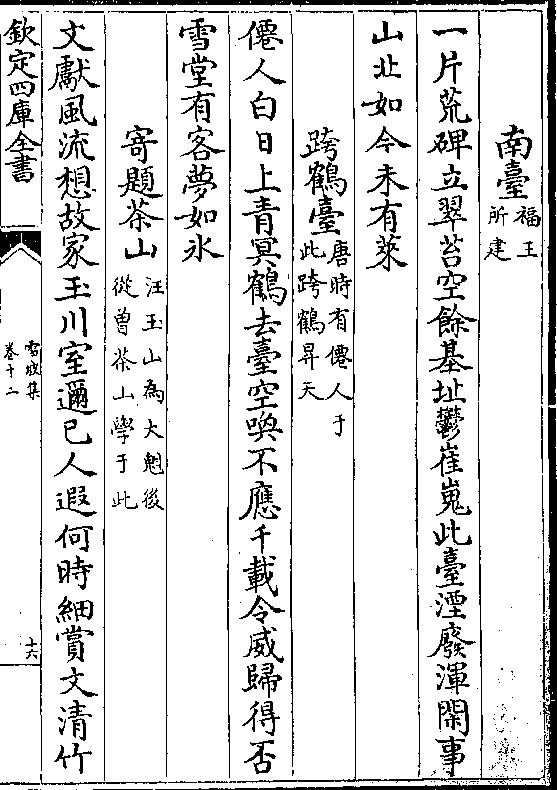 南臺福王所建
一片荒碑立翠苔空餘基址鬱崔嵬此臺湮廢渾閑事
山北如今未有萊
跨鶴臺唐時有僊人于此跨鶴昇天
僊人白日上青冥鶴去臺空喚不應千載令威歸得否
雪堂有客夢如氷
寄題茶山汪玉山為大魁後從曾茶山學于此
文獻風流想故家玉川室邇已人遐何時細賞文清竹
欽定四庫全書
雪坡集
卷十二
十六